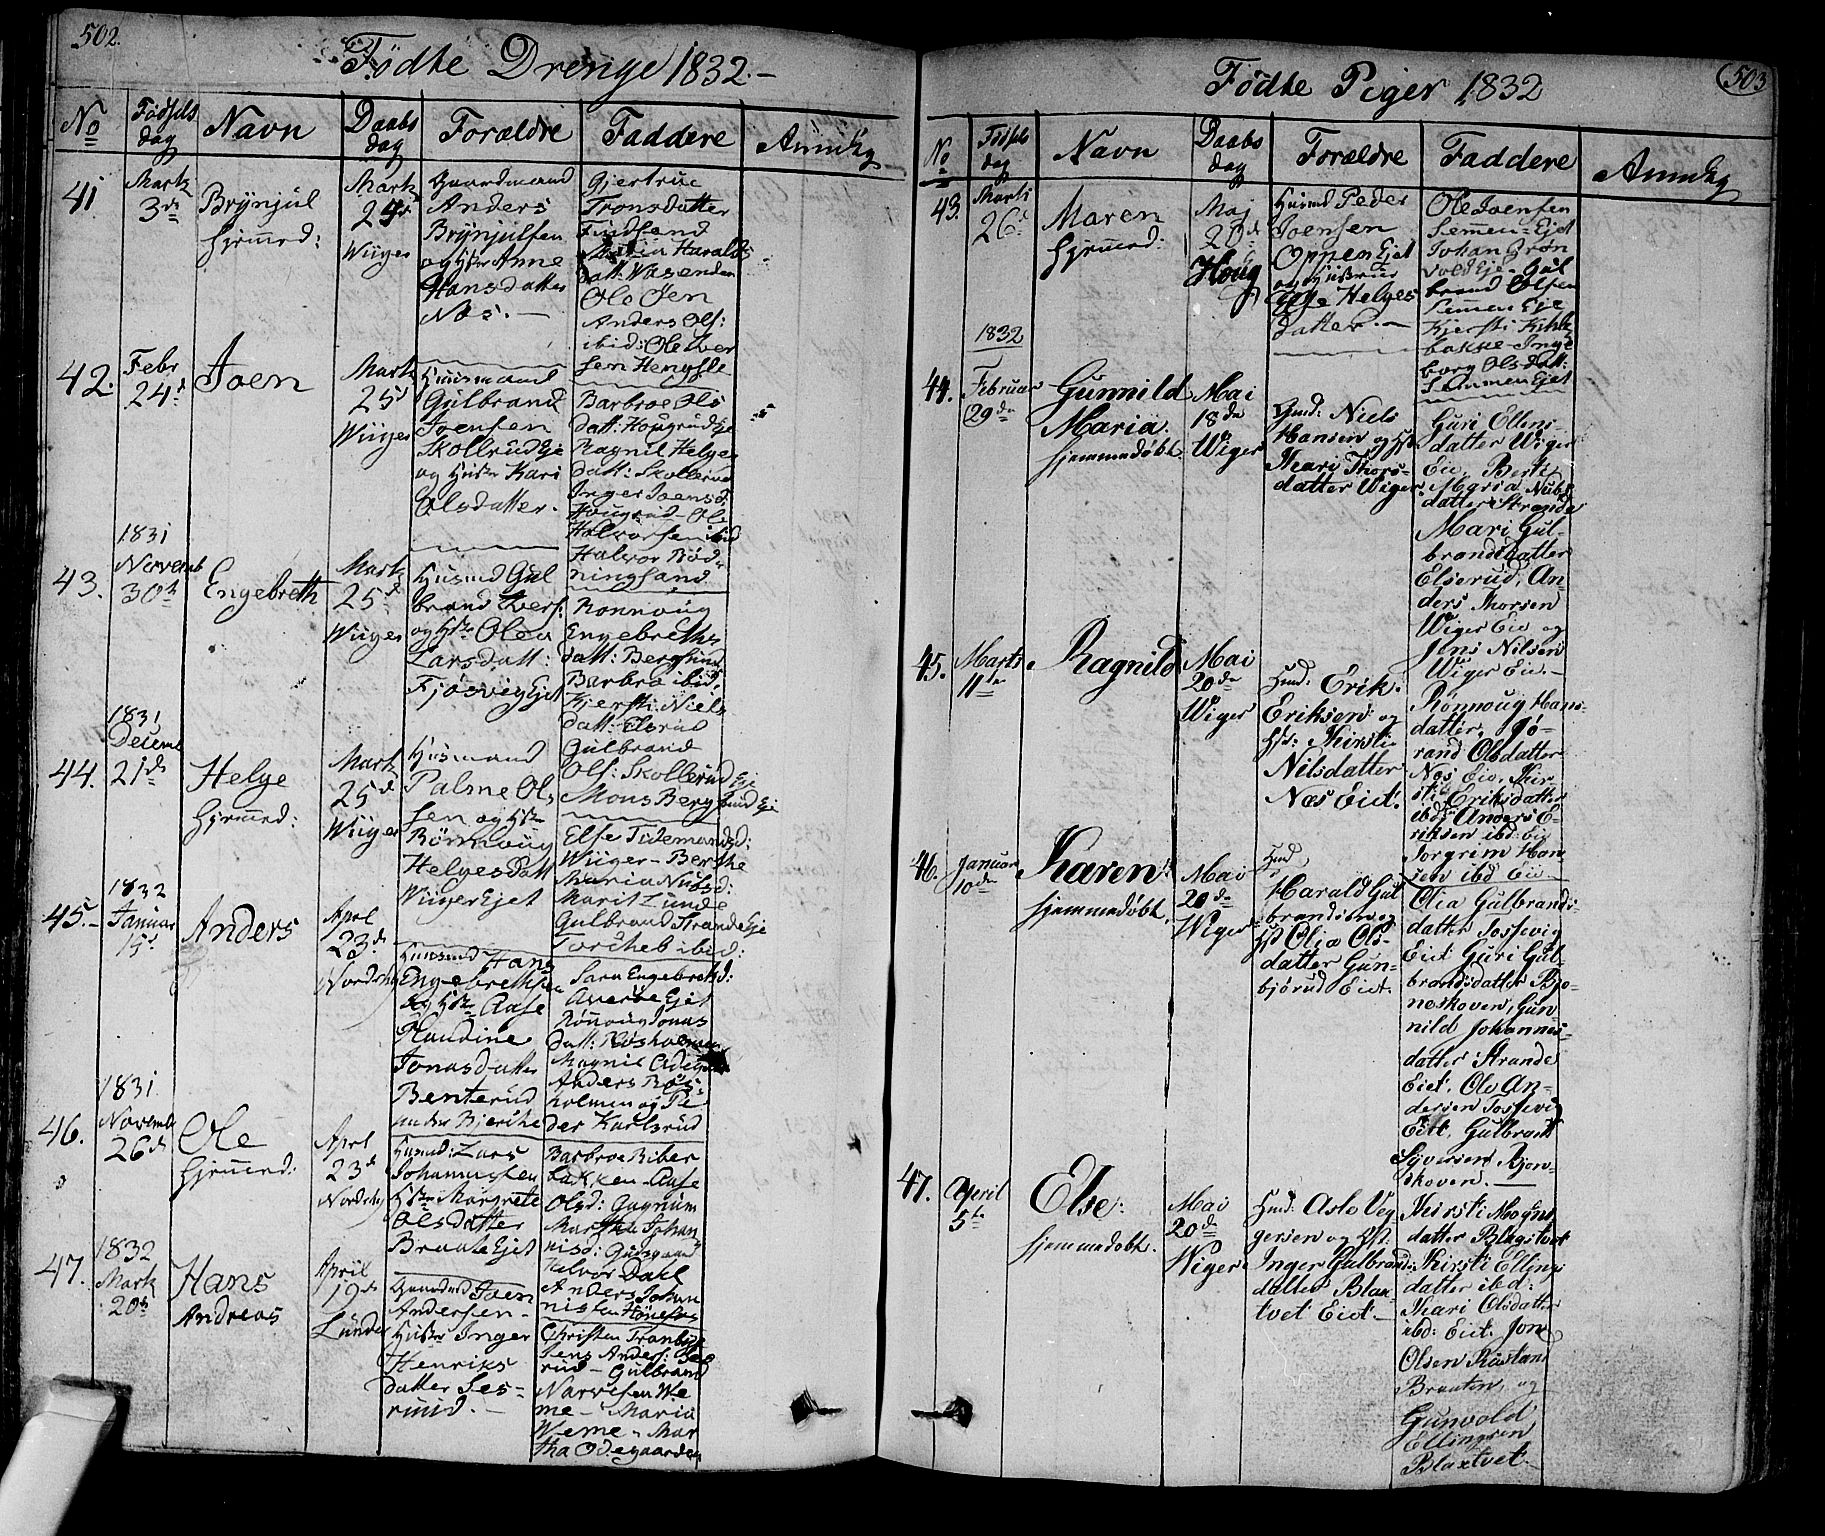 502.
Fødte Drenge 1832.-
No
Fødsels
dag
Navn
Daabs
dag
Forældre
Faddere
Anmkg
41
Mark
3de
Brÿnjul
hjemmed:
Mark
25d
Wiiger
Gaardmand
Anders
Brÿnjulsen
og Hstr Anne
Hansdatter
Næs. -
Gjertrue
Tronsdatter
Haralds
datt: Wasenden
Ole Jen
Anders Ols:
ibid: Ole Iver
sen Hengsle
42.
Febr
24d
Joen
Mark
25d
Wiiger
Huusmand
Gulbrand
Joensen
Skollrud Eje
og Hstr Kari
Olsdatter.
Barbroe Ols
datt: Hougrud Eje
Ragnil Helges
datt: Skollerud
Inger Joensd:
Hougrud - Ole
Halvorsen ibid
Halvor Rød
ningsand
43.
1831
Novemb
30te
Engebreth
Mark
25d
Wiiger
Husmd Gul
brand Ivers:
og Hstr Olea
Larsdatt:
Fjøsvig Ejet
Ronnoug
Engebreths
datt: Berglund
Barbro ibid,
Kjersti Niels
datt: Elsrud
Gulbrand
Ols: Skollerud Eje
Mons Berglund Eje
44.
1831
Decemb
21de
Helge
hjemmed:
Mark
25d
Wiiger
Husmand
Palme Ol
sen og Hstr
Rønnoug
Helgesdatt
Wiiger Ejet
Else Tidemandsd:
Wiiger - Berthe
Maria Nubsd:
Marit Lunde
Gulbrand Strande Eje
Torsteb ibid:
45.-
1832
Januar
15d
Anders
Aprl
23de
Nordrehg
Huusmd Hans
Engebrethsen
og Hstr Aase
Klaudine
Jonasdatter
Benterud
under Bjerche
Sara Engebrethd:
Averøe Ejet
Rønnoug Jonas
datt: Røsholmen
Magnil
Anders Røs
holmen og Pe
der Karlsrud
46.
1831.
Novemb
26de
Ole
hjemmed:
Aprl
23de
Nordrehg
Husmd: Lars
Johannesen
Hstr Margrete
Olsdatter
Braate Ejet
Barbroe Riber
bakken - Aase
Olsd: Gagnum
Marthe Johan
nisd: Gusgaard
Halvor Dahl
Anders Johan
nissen Hønefos
47.
1832
Mark
20de
Hans
Andreas
April
19de
Lunder
Gaardmd Joen
Andersen -
Hustr Inger
Henriks
datter Ses-
rud. -
Christen Tranbye
Jens Anders: Ses
rud - Gulbrand
Narvesen We
me - Maria
Weme - Mar
tha Ødegaarden
503
Fødte Piger 1832
No
Fødsels
dag
Navn
Daabs
dag
Forældre
Faddere
Anmkg
43.
Marti
26d
Maren
hjemmed:
Maj
20de
Houg
Husmd Peder
Joensen
Oppen Ejet
og Hustrue
Else Helges
datter. -
Ole Joensen
Semmen - Ejet
Johan Grøn
vold Eje - Gul
brand Olsen
Semmen Eje
Kjersti
bakke - Inge
borg Olsdatt:
Semmen Ejet
1832
44.
Februar
29de
Gunnild
Maria.
hjemmedøbt
Mai
18de
Wiger
Husmd: Niels
Hansen og Hst
Kari Thors-
datter Wiger
Guri Ellens-
datter Wiger
Eie, Berte
Maria Nubs
datter Strande
Mari Gul-
brandsdatter
Elserud, An-
ders Thorsen
Wiger Eie og
Jens Nilsen
Wiger Eie.-
45.
Marts
11te
Ragnild
Mai
20de
Wiger
Husmd: Erik
Eriksen og
Hst: Kirsti
Nilsdatter
Næs Eiet.
Rønnoug Hans-
datter, Jø-
rand Olsdatter
Næs Eie, Kir-
sti Eriksdatter
ibd: Anders E-
riksen ibd: Eie
Torgrim Han-
sen ibd Eie -
46.
Januar
10de
Karen:
hjemmedøbt.
Mai
20de
Wiger
Husmd,
Harald Gul
brandsen og
Hst Olia Ols-
datter Gun-
bjørud Eiet.
Olia Gulbrands-
datter Fossevig
Eiet Guri Gul-
brandsdatter Bjo-
neskoven, Gun-
nild Johannes-
datter Strande
Eiet. Ole An-
dersen Fossevig
Eiet. Gulbrand
Syversen Bjon-
skoven. -
47.
April
5te
Else:
hjemmedøbt.
Mai
20de
Wiger
Husmd: Aslo Veg
gersen og Hst:
Inger Gulbrands
datter Blax-
tvet Eiet -
Kirsti Mogns
datter Blagstvet
Kirsti Ellings
datter ibd:
Kari Olsdatter
ibd: Eiet. Jon
Olsen
Braaten, og
Gunvold
Ellingsen
Blaxtvet.